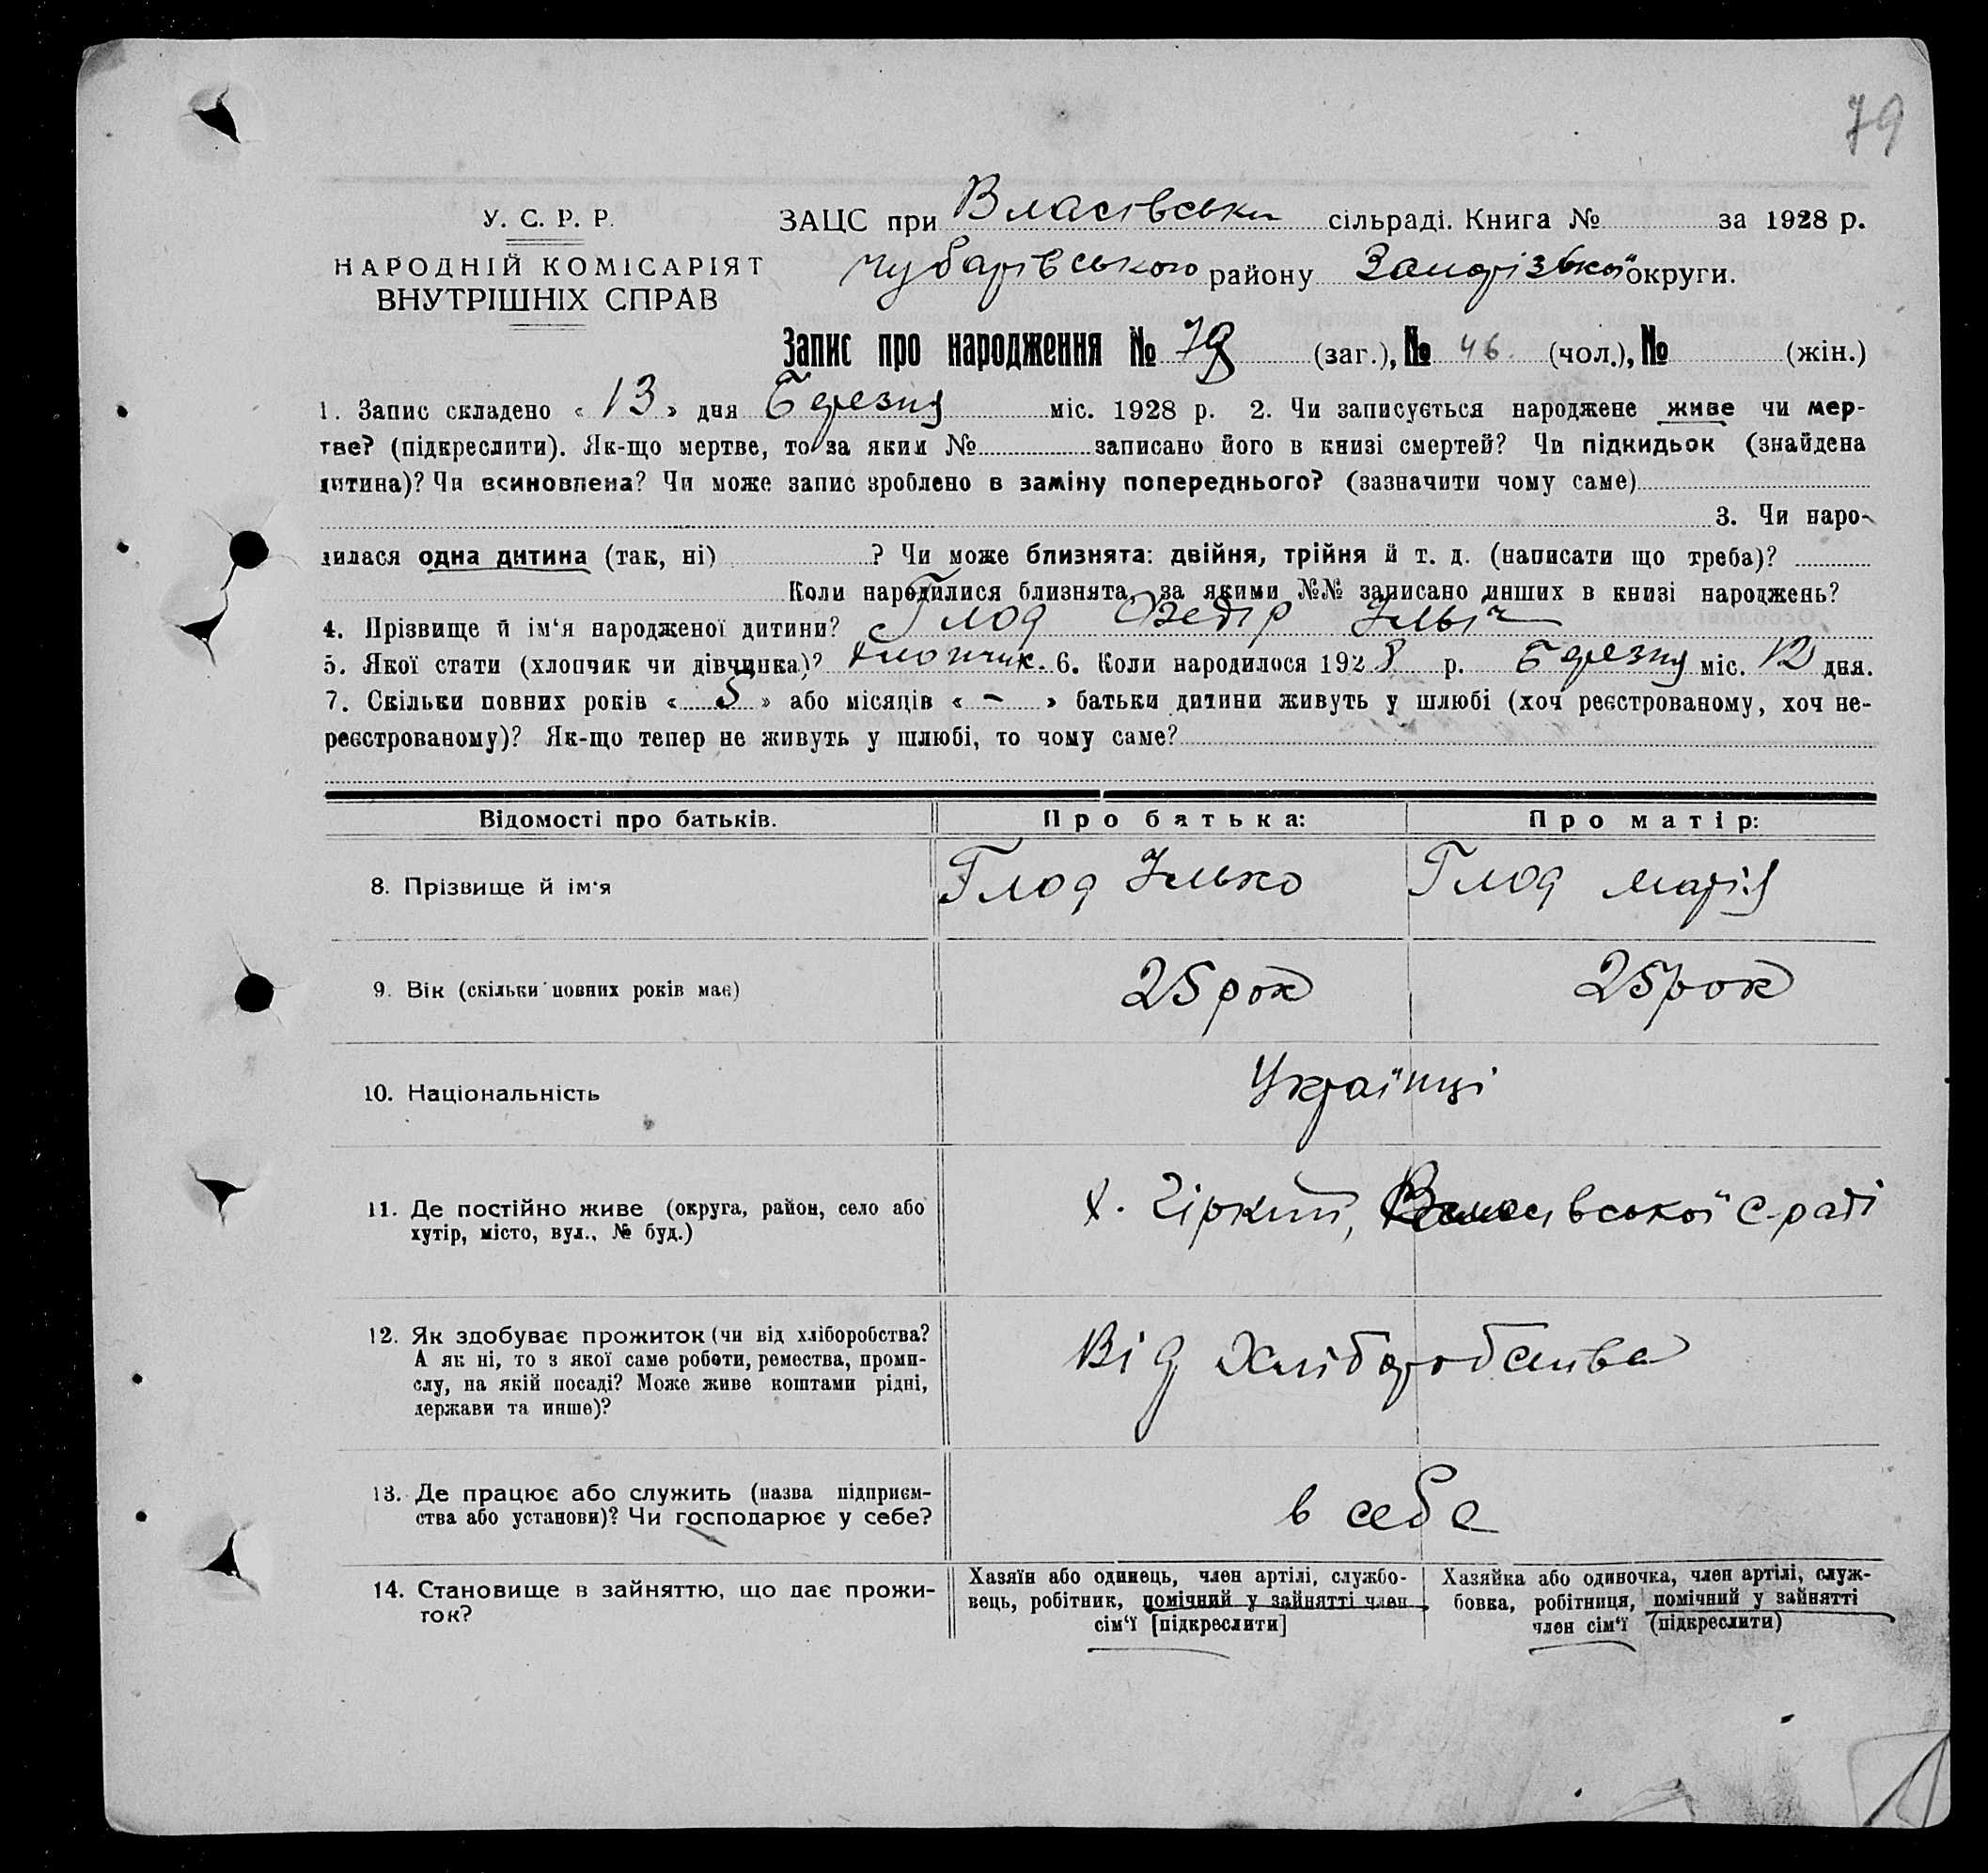 79
У. С. Р. Р.
НАРОДНІЙ КОМІСАРІЯТ
ВНУТРІШНІХ СПРАВ
ЗАЦС при Власівськи сільраді. Книга № за 1928 р.
Чубарівського району Запорізької округи.
Запис про народження № 79 (заг.), № 46. (чол.), № (жін.)
1. Запис складено « 13 » дня Березня міс. 1928 р. 2. Чи записується народжене живе чи мер-
тве? (підкреслити). Як-що мертве, то за яким № записано його в книзі смертей? Чи підкидьок (знайдена
дитина)? Чи всиновлена? Чи може запис зроблено в заміну попереднього? (зазначити чому саме)
3. Чи наро-
дилася одна дитина (так, ні) ? Чи може близнята: двійня, трійня й т. д. (написати що треба)?
Коли народилися близнята, за якими №№ записано инших в книзі народжень?
4. Прізвище й ім‘я народженої дитини? Глод Федір Ільіч
5. Якої стати (хлопчик чи дівчинка)? Хлопчик. 6. Коли народилося 1928 р. Березня міс. 12 дня.
7. Скільки повних років « 5 » або місяців « – » батьки дитини живуть у шлюбі (хоч реєстрованому, хоч не-
реєстрованому)? Як-що тепер не живуть у шлюбі, то чому саме?
Відомості про батьків. Про батька: Про матір:
8. Прізвище й ім‘я Глод Ілько Глод Марія
9. Вік (скільки повних років має) 25 рок 25 рок
10. Національність Українці
11. Де постійно живе (округа, район, село або
хутір, місто, вул., № буд.)
х. Гіркий, Власівської с-раді
12. Як здобуває прожиток (чи від хліборобства?
А як ні, то з якої саме роботи, ремества, проми-
слу, на якій посаді? Може живе коштами рідні,
держави та инше)?
Від Хліборобства
13. Де працює або служить (назва підприєм-
ства або установи)? Чи господарює у себе?
в себе
14. Становище в зайняттю, що дає прожи-
ток?
Хазяїн або одинець, член артілі, службо-
вець, робітник, помічний у зайнятті член
сім‘ї [підкреслити]
Хазяйка або одиночка, член артілі, служ-
бовка, робітниця, помічний у зайнятті
член сім‘ї (підкреслити)